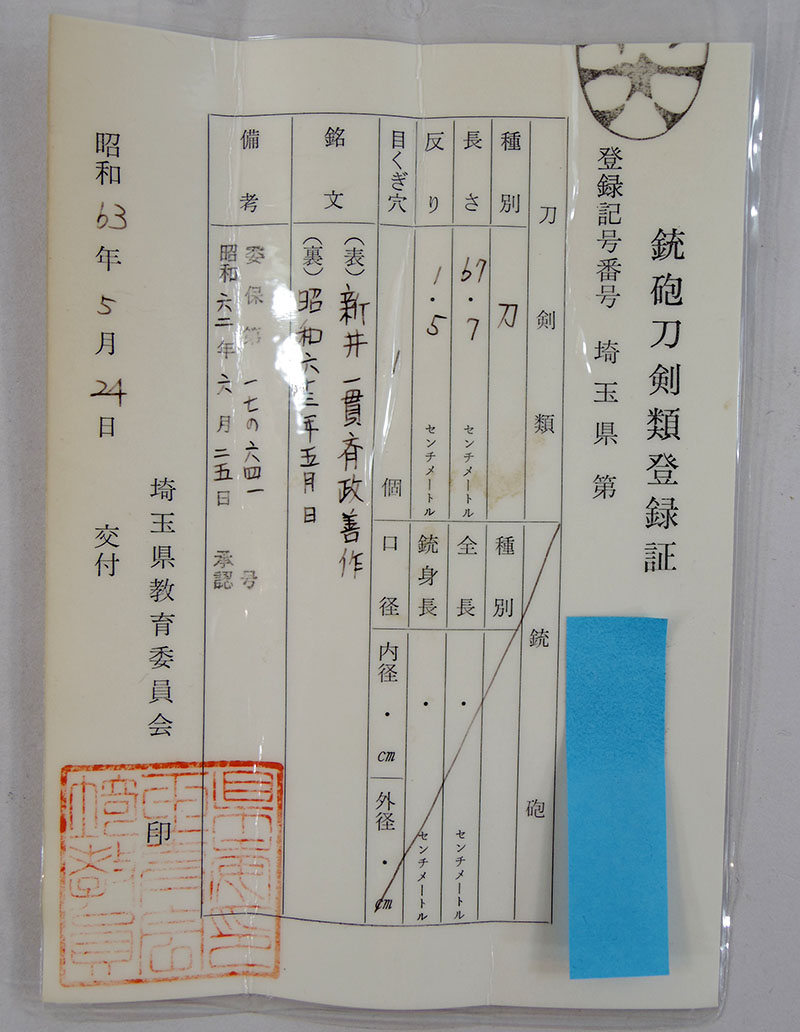 銃砲刀剣類登録証
登録記号番号 埼玉県 第
刀剣類
種別 刀
長さ 67.7 センチメートル
反り 1.5 センチメートル
目くぎ穴 1 個
銃砲
種別
全長 ・ センチメートル
銃身長 ・ センチメートル
口径 内径 ・ cm 外径 ・ cm
銘文 (表) 新井一貫斉政善作
(裏) 昭和六十三年五月日
備考 委保第一七の六四一号
昭和六二年六月二五日 承認
昭和63年5月24日 交付
埼玉県教育委員会 印